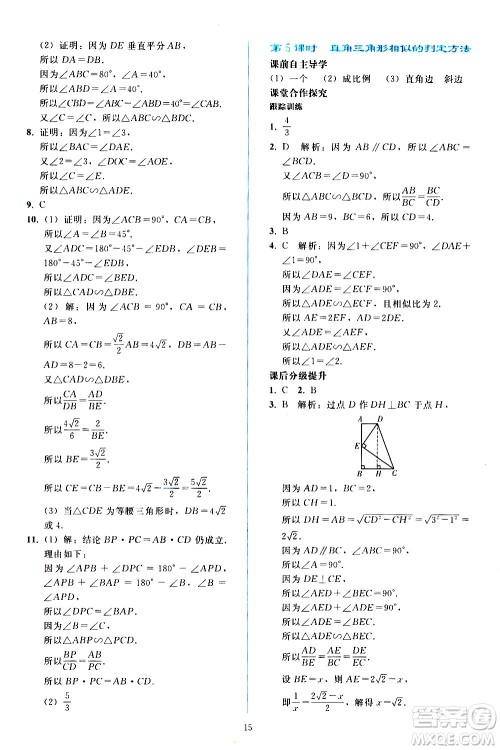 (2) 证明：因为 AE 垂直平分 BD，
所以 OA=OB.
所以 ∠ABD=∠OAB.
所以 ∠CBD=∠CAE.
所以 ∠ABD+∠CBD=∠OAB+∠CAE.
所以 ∠ABC=∠BAC.
8. 证明：因为 ∠1=∠3，
所以 ∠BAC=∠DAE.
又 ∠2=∠3，∠DOC=∠AOE，
所以 ∠C=∠E.
所以 △ABC∽△ADE.
9. C
10. (1) 证明：因为 ∠ACB=90°，CA=CB，
所以 ∠A=∠B=45°.
又 ∠CDE=45°，
所以 ∠ACD=180°-45°-∠ADC，∠BDE=
180°-45°-∠ADC.
所以 ∠ACD=∠BDE.
所以 △CAD∽△DBE.
(2) 解：因为 ∠ACB=90°，CA=CB，
AB=8，
所以 CA=CB=√2/2 AB=4√2，BD=AB-
AD=8-2=6.
又 △CAD∽△DBE，
所以 CA/DB=AD/BE.
所以 4√2/6=2/BE.
所以 BE=3√2/2.
所以 CE=CB-BE=4√2-3√2/2=5√2/2.
(3) 当 △CDE 为等腰三角形时，BD=4√2
或 4.
11. (1) 解：结论 BP·PC=AB·CD 仍成立.
理由如下：
因为 ∠APB+∠DPC=180°-∠APD，
∠BAP+∠APB=180°-∠B，
又 ∠B=∠APD，
所以 ∠DPC=∠BAP.
又 ∠B=∠C，
所以 △ABP∽△PCD.
所以 BP/CD=AB/PC.
所以 BP·PC=AB·CD.
(2) 5/3
第5课时 直角三角形相似的判定方法
课前自主导学
(1) 一个 (2) 成比例 (3) 直角边 斜边
课堂合作探究
跟踪训练
1. 4/3
2. D 解析：因为 AB∥CD，
所以 ∠BCD=∠ABC.
又 ∠ACB=∠D=90°，
所以 △ABC∽△BCD. 所以 AB/BC=BC/CD.
3. B
4. C 解析：因为 ∠1+∠CEF=∠DAE+
∠1=90°，
所以 ∠CEF=∠DAE.
又 ∠D=∠C=90°，
所以 △ADE∽△ECF，且相似比为 2.
所以 AE=2EF，AD=2DE.
又 △ADE∽△AEF，
所以 △AEF∽△ECF.
课后分级提升
1. C 2. B
3. B 解析：过点 D 作 DH⊥BC 于点 H，
A D
E
B H C
因为 AD=1，BC=2，
所以 CH=1.
所以 DH=AB=√(CD²-CH²)=√(3²-1²)=2√2.
因为 DE⊥CE，
所以 ∠AED+∠BEC=90°.
因为 ∠AED+∠ADE=90°，
所以 ∠ADE=∠BEC.
所以 △ADE∽△BEC.
所以 AD/BE=AE/BC=DE/EC.
设 BE=x，则 AE=2√2-x，
即 1/x=(2√2-x)/2，解得 x=√2.
15